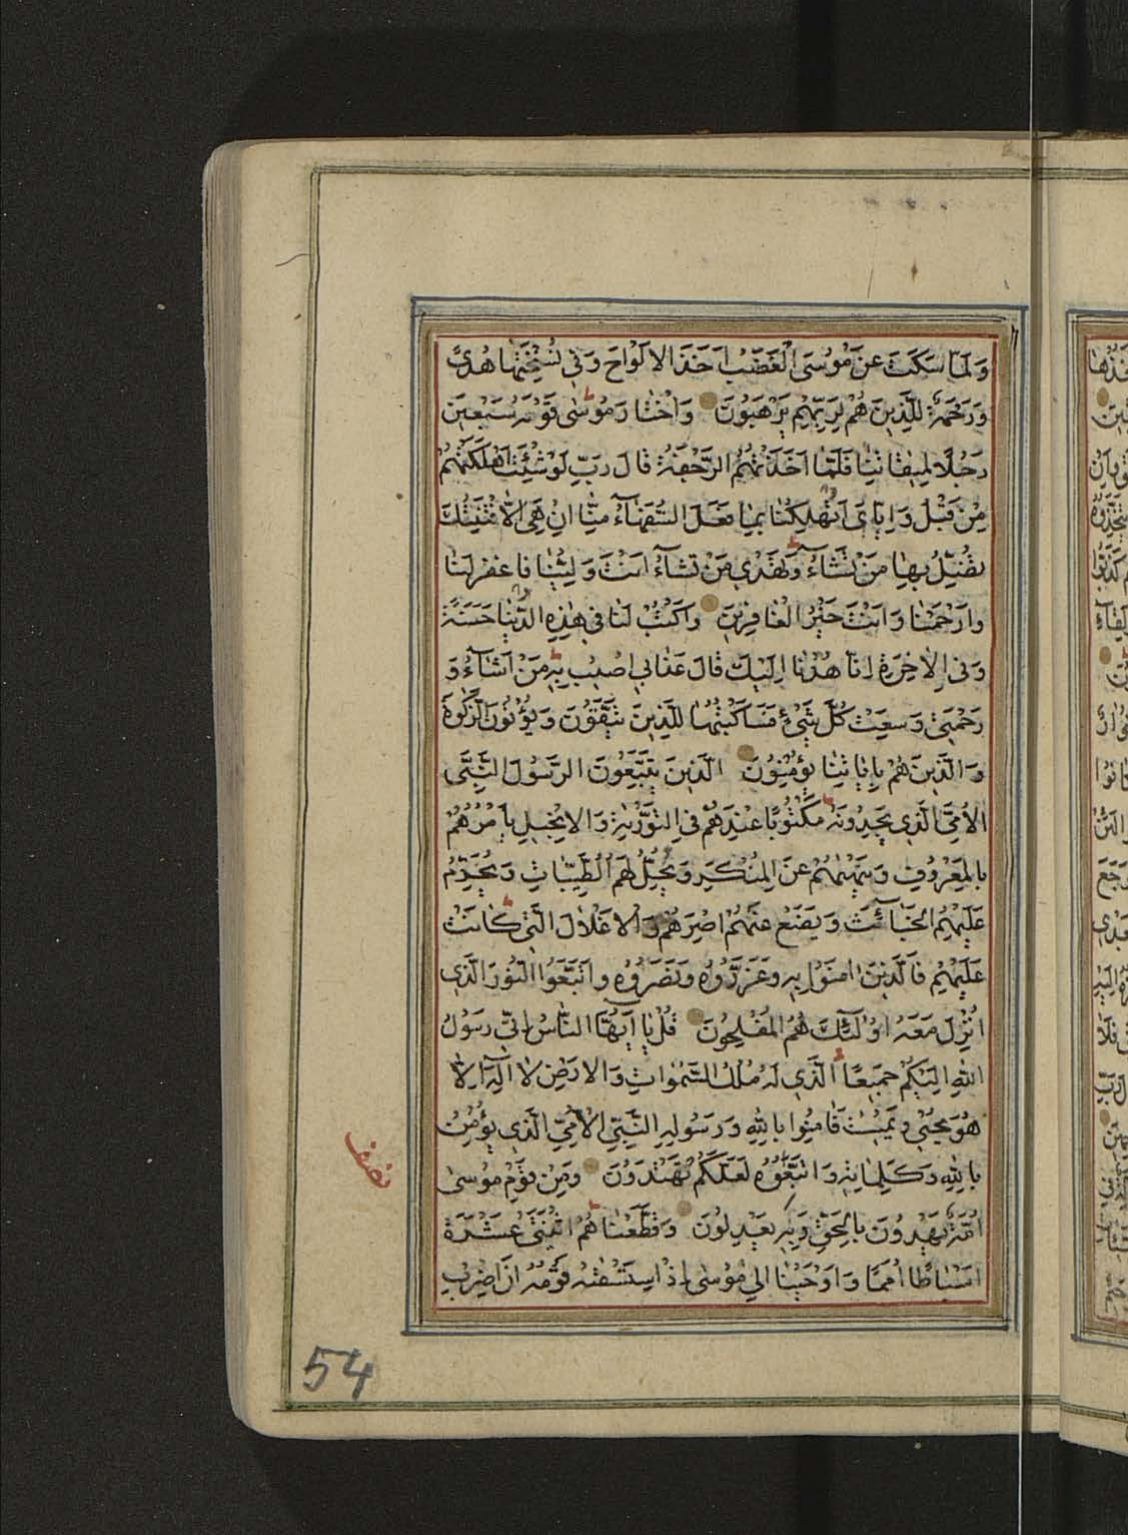 وَلَمَّا سَكَتَ عَنْ مُوسَى الْغَضَبُ اَخَذَ الْاَلْوَاحَ وَفِي نُسْخَتِهَا هُدًى
وَرَحْمَةٌ لِلَّذِينَ هُمْ لِرَبِّهِمْ يَرْهَبُونَ وَاخْتَارَ مُوسٰى قَوْمَهُ سَبْعِينَ
رَجُلًا لِمِيقَاتِنَا فَلَمَّا اَخَذَتْهُمُ الرَّجْفَةُ قَالَ رَبِّ لَوْ شِئْتَ اَهْلَكْتَهُمْ
مِنْ قَبْلُ وَاِيَّايَ اَتُهْلِكُنَا بِمَا فَعَلَ السُّفَهَآءُ مِنَّا اِنْ هِيَ اِلَّا فِتْنَتُكَ
تُضِلُّ بِهَا مَنْ تَشَآءُ وَتَهْدِي مَنْ تَشَآءُ اَنْتَ وَلِيُّنَا فَاغْفِرْ لَنَا
وَارْحَمْنَا وَاَنْتَ خَيْرُ الْغَافِرِينَ وَاكْتُبْ لَنَا فِي هٰذِهِ الدُّنْيَا حَسَنَةً
وَفِي الْاٰخِرَةِ اِنَّا هُدْنَا اِلَيْكَ قَالَ عَذَابِي اُصِيبُ بِهِ مَنْ اَشَآءُ وَ
رَحْمَتِي وَسِعَتْ كُلَّ شَيْءٍ فَسَاَكْتُبُهَا لِلَّذِينَ يَتَّقُونَ وَيُؤْتُونَ الزَّكٰوةَ
وَالَّذِينَ هُمْ بِاٰيَاتِنَا يُؤْمِنُونَ الَّذِينَ يَتَّبِعُونَ الرَّسُولَ النَّبِيَّ
الْاُمِّيَّ الَّذِي يَجِدُونَهُ مَكْتُوبًا عِنْدَهُمْ فِي التَّوْرٰيةِ وَالْاِنْجِيلِ يَاْمُرُهُمْ
بِالْمَعْرُوفِ وَيَنْهٰيهُمْ عَنِ الْمُنْكَرِ وَيُحِلُّ لَهُمُ الطَّيِّبَاتِ وَيُحَرِّمُ
عَلَيْهِمُ الْخَبَآئِثَ وَيَضَعُ عَنْهُمْ اِصْرَهُمْ وَالْاَغْلَالَ الَّتِي كَانَتْ
عَلَيْهِمْ فَالَّذِينَ اٰمَنُوا بِهِ وَعَزَّرُوهُ وَنَصَرُوهُ وَاتَّبَعُوا النُّورَ الَّذِي
اُنْزِلَ مَعَهُ اُولٰئِكَ هُمُ الْمُفْلِحُونَ قُلْ يَا اَيُّهَا النَّاسُ اِنِّي رَسُولُ
اللّٰهِ اِلَيْكُمْ جَمِيعًا الَّذِي لَهُ مُلْكُ السَّمٰوَاتِ وَالْاَرْضِ لَا اِلٰهَ اِلَّا
هُوَ يُحْيِي وَيُمِيتُ فَاٰمِنُوا بِاللّٰهِ وَرَسُولِهِ النَّبِيِّ الْاُمِّيِّ الَّذِي يُؤْمِنُ
بِاللّٰهِ وَكَلِمَاتِهِ وَاتَّبِعُوهُ لَعَلَّكُمْ تَهْتَدُونَ وَمِنْ قَوْمِ مُوسٰى
اُمَّةٌ يَهْدُونَ بِالْحَقِّ وَبِهِ يَعْدِلُونَ وَقَطَّعْنَاهُمُ اثْنَتَيْ عَشْرَةَ
اَسْبَاطًا اُمَمًا وَاَوْحَيْنَا اِلٰى مُوسٰى اِذِ اسْتَسْقٰيهُ قَوْمُهُ اَنِ اضْرِبْ
نصف
54